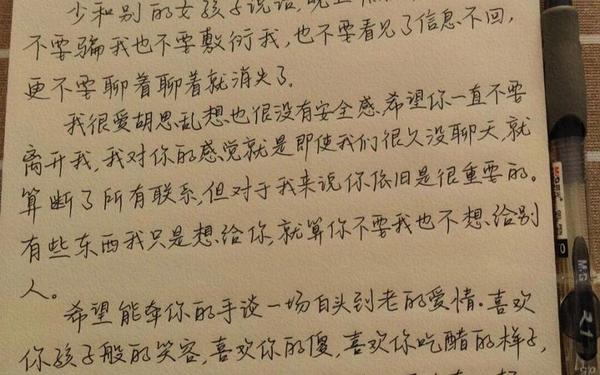 少和别的女孩子说话,晚上
不要骗我也不要敷衍我,也不要看见了信息不回,
更不要聊着聊着就消失了.
我很爱胡思乱想也很没有安全感,希望你一直不要
离开我,我对你的感觉就是即使我们很久没聊天,就
算断了所有联系,但对于我来说你依旧是很重要的。
有些东西我只是想给你,就算你不要我也不想给别
人。
希望能牵你的手谈一场白头到老的爱情.喜欢
你孩子般的笑容,喜欢你的傻,喜欢你吃醋的样子,
M&G